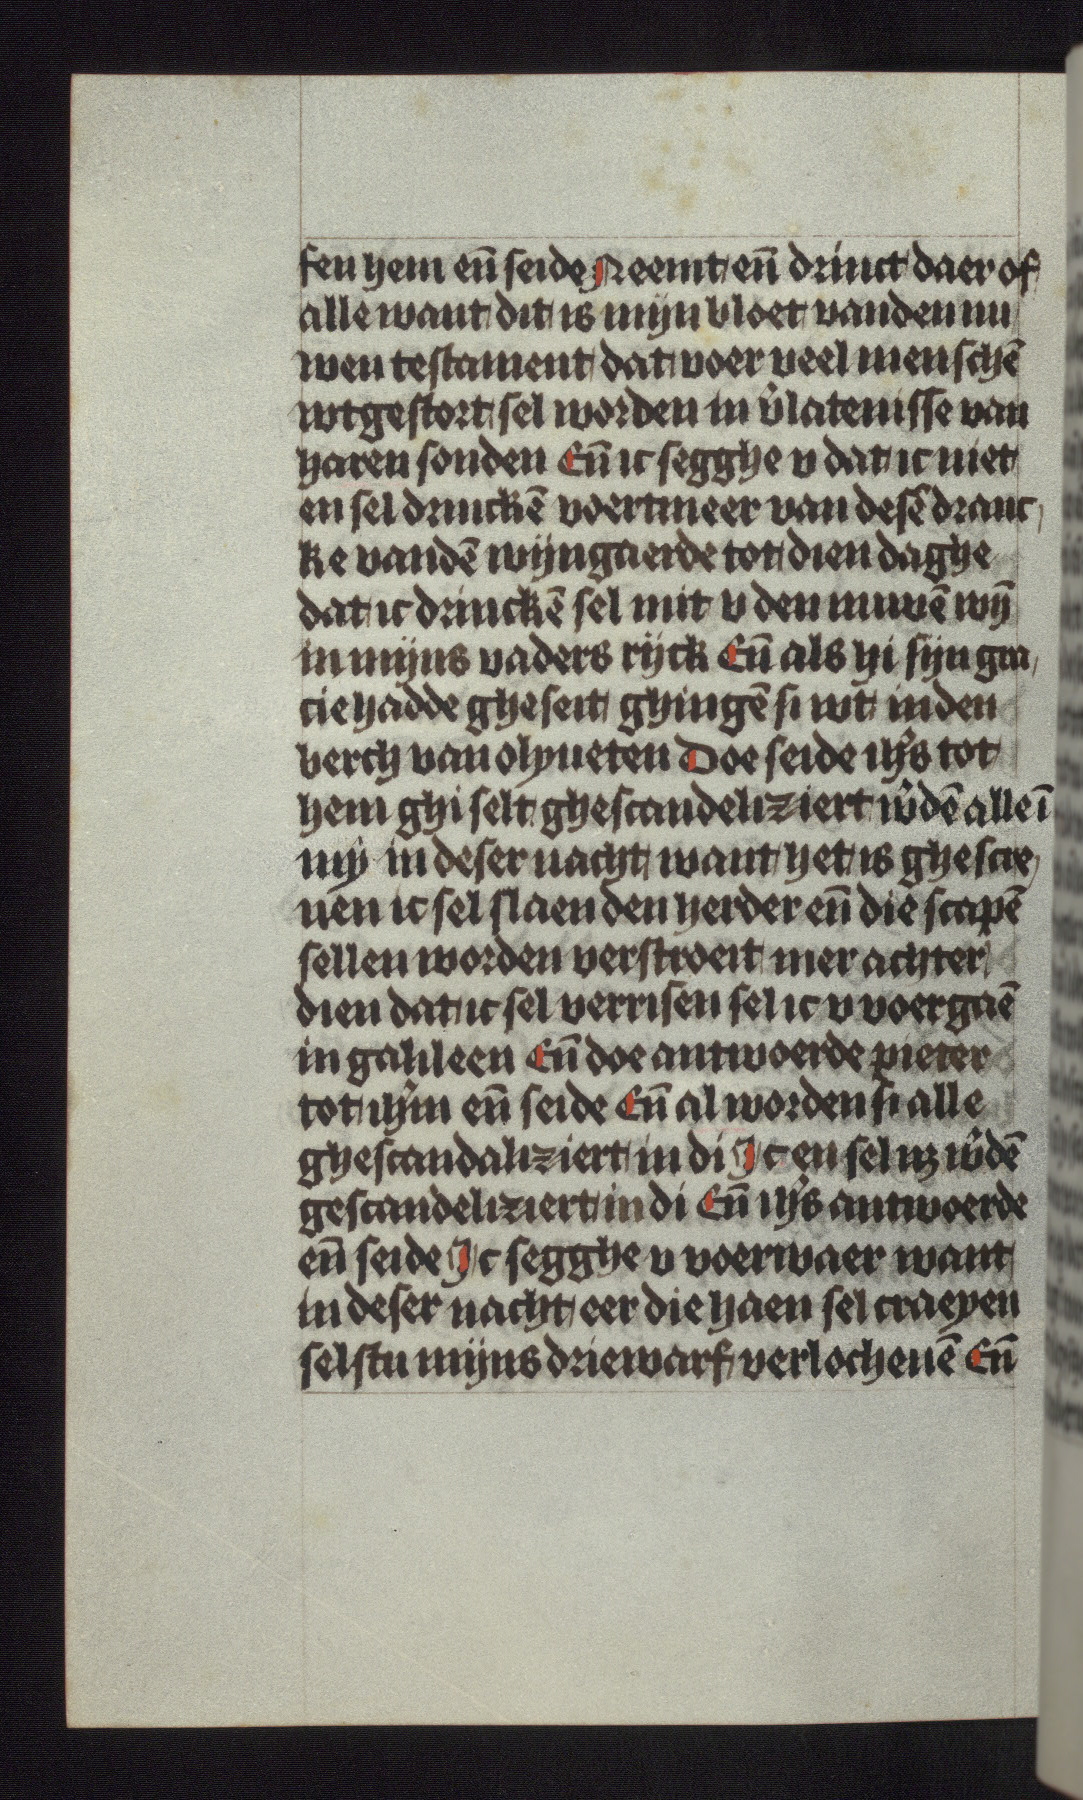 fen hem en̄ seide Neemt en̄ drinct daer of
alle want dit is mijn bloet vanden nu
wen testament dat voer veel menschē
wtgestort sel worden in v̂latenisse van
haren sonden En̄ ic segghe v dat ic niet
en sel drinckē voertmeer van desē dranc,
ke vandē wijngaerde tot dien daghe
dat ic drinckē sel mit v den nuwē wȳ
in mijns vaders rijck En̄ als hi sijn gra,
cie hadde gheseit ghingē si wt inden
berch van olyueten Doe seide iĥs tot
hem ghi selt ghescandeliziert ŵdē alle ī
mij in deser nacht want het is ghescre,
uen ic sel slaen den herder en̄ die scapē
sellen worden verstroeit mer achter
dien dat ic sel verrisen sel ic v voergaē
in galileen En̄ doe antwoerde pieter
tot ih̄m en̄ seide En̄ al worden si alle
ghescandaliziert in di Ic en sel nꝫ ŵdē
gescandeliziert in di En̄ iĥs antwoerde
en̄ seide Ic segghe v voerwaer want
in deser nacht eer die haen sel craeyen
selstu mijns driewarf verlochenē En̄